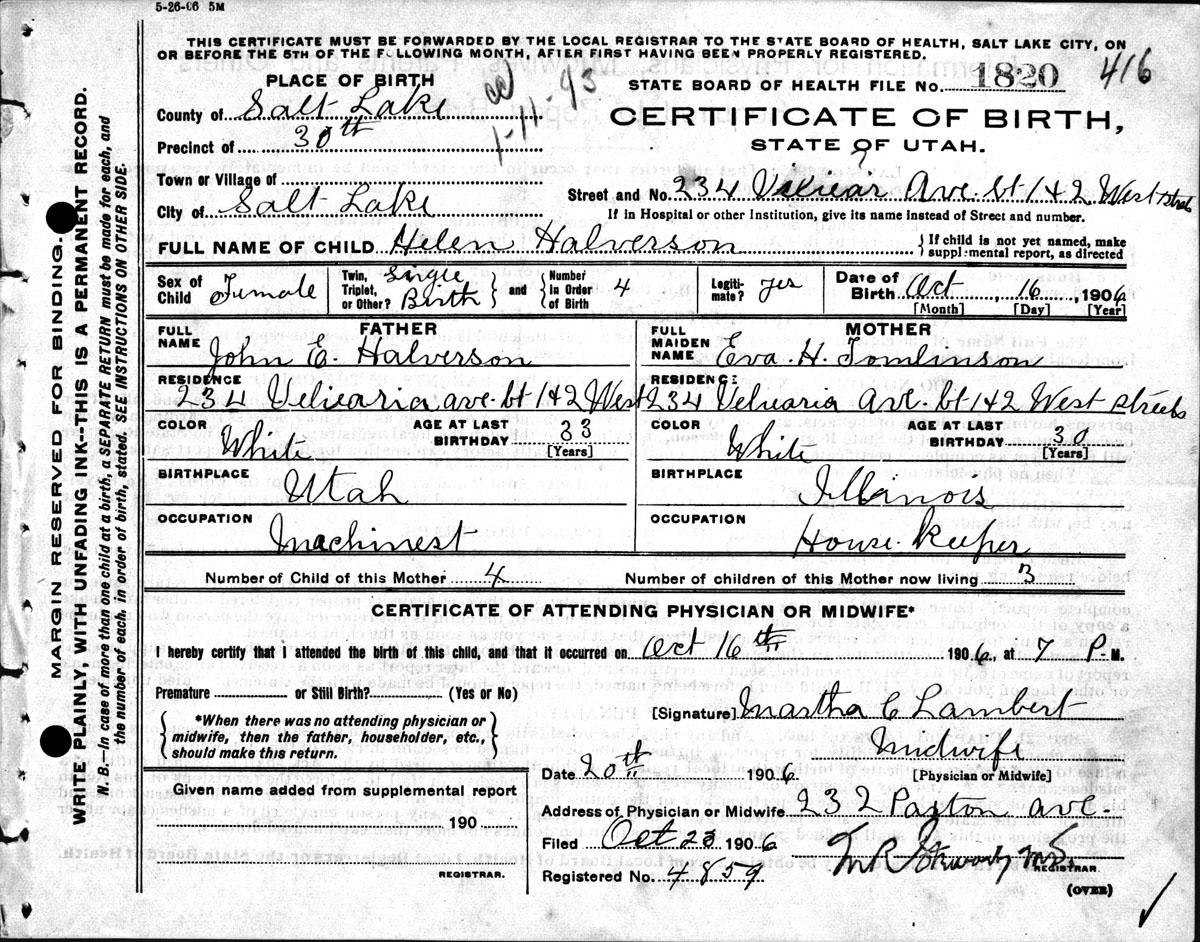 5-26-06 5M
THIS CERTIFICATE MUST BE FORWARDED BY THE LOCAL REGISTRAR TO THE STATE BOARD OF HEALTH, SALT LAKE CITY, ON
OR BEFORE THE 5TH OF THE FOLLOWING MONTH, AFTER FIRST HAVING BEEN PROPERLY REGISTERED.
416
PLACE OF BIRTH
STATE BOARD OF HEALTH FILE No. 1820
County of Salt Lake
1-11-43
CERTIFICATE OF BIRTH,
Precinct of 30th
STATE OF UTAH.
Town or Village of
Street and No. 234 Ave. bt 1 & 2 West
City of Salt Lake
If in Hospital or other Institution, give its name instead of Street and number.
FULL NAME OF CHILD Helen Halverson
{ If child is not yet named, make
supplemental report, as directed
Sex of Child Female
Twin, Triplet, or Other? Single Birth } and { Number in Order of Birth 4
Legitimate? yes
Date of Birth Oct, 16, 1906
[Month] [Day] [Year]
FATHER
FULL NAME John E. Halverson
MOTHER
FULL MAIDEN NAME Eva H. Tomlinson
RESIDENCE
234 Velvearia ave. bt 1 & 2 West
RESIDENCE
234 Velvearia Ave. bt 1 & 2 West streets
COLOR White
AGE AT LAST BIRTHDAY 33 [Years]
COLOR White
AGE AT LAST BIRTHDAY 30 [Years]
BIRTHPLACE Utah
BIRTHPLACE Illinois
OCCUPATION Machinest
OCCUPATION House keeper
Number of Child of this Mother 4
Number of children of this Mother now living 3
CERTIFICATE OF ATTENDING PHYSICIAN OR MIDWIFE*
I hereby certify that I attended the birth of this child, and that it occurred on Oct 16th 1906, at 7 P.M.
Premature or Still Birth? (Yes or No)
{ *When there was no attending physician or
midwife, then the father, householder, etc.,
should make this return. }
[Signature] Martha C Lambert
Midwife
[Physician or Midwife]
Date 20th 1906
Given name added from supplemental report
190
REGISTRAR.
Address of Physician or Midwife 232 Paxton ave
Filed Oct 23 1906
REGISTRAR
Registered No. 4859
(OVER)
MARGIN RESERVED FOR BINDING.
WRITE PLAINLY, WITH UNFADING INK--THIS IS A PERMANENT RECORD.
N. B.--In case of more than one child at a birth, a SEPARATE RETURN must be made for each, and
the number of each, in order of birth, stated. SEE INSTRUCTIONS ON OTHER SIDE.